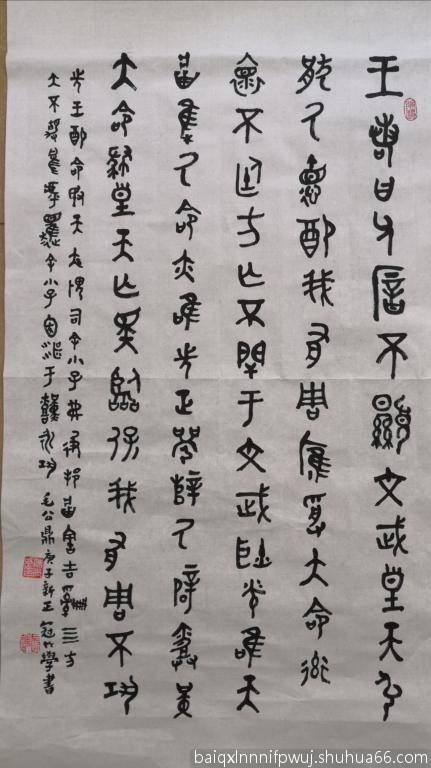 王若曰父歆不顯文武皇天弘
猒厥德配我有周膺受大命率
懷不廷方亡不閈于文武耿光唯天
將集厥命亦唯先正辥厥辟堇
大命肆皇天亡斁臨保我有周不巩
先王配命敃天疾畏司余小子弗彶邦將害吉四方
大不靜烏乎余小子圂湛于艱永巩 毛公鼎 庚子新正 冠竹學書
baiqxlnnnifpwuj.shuhua66.com